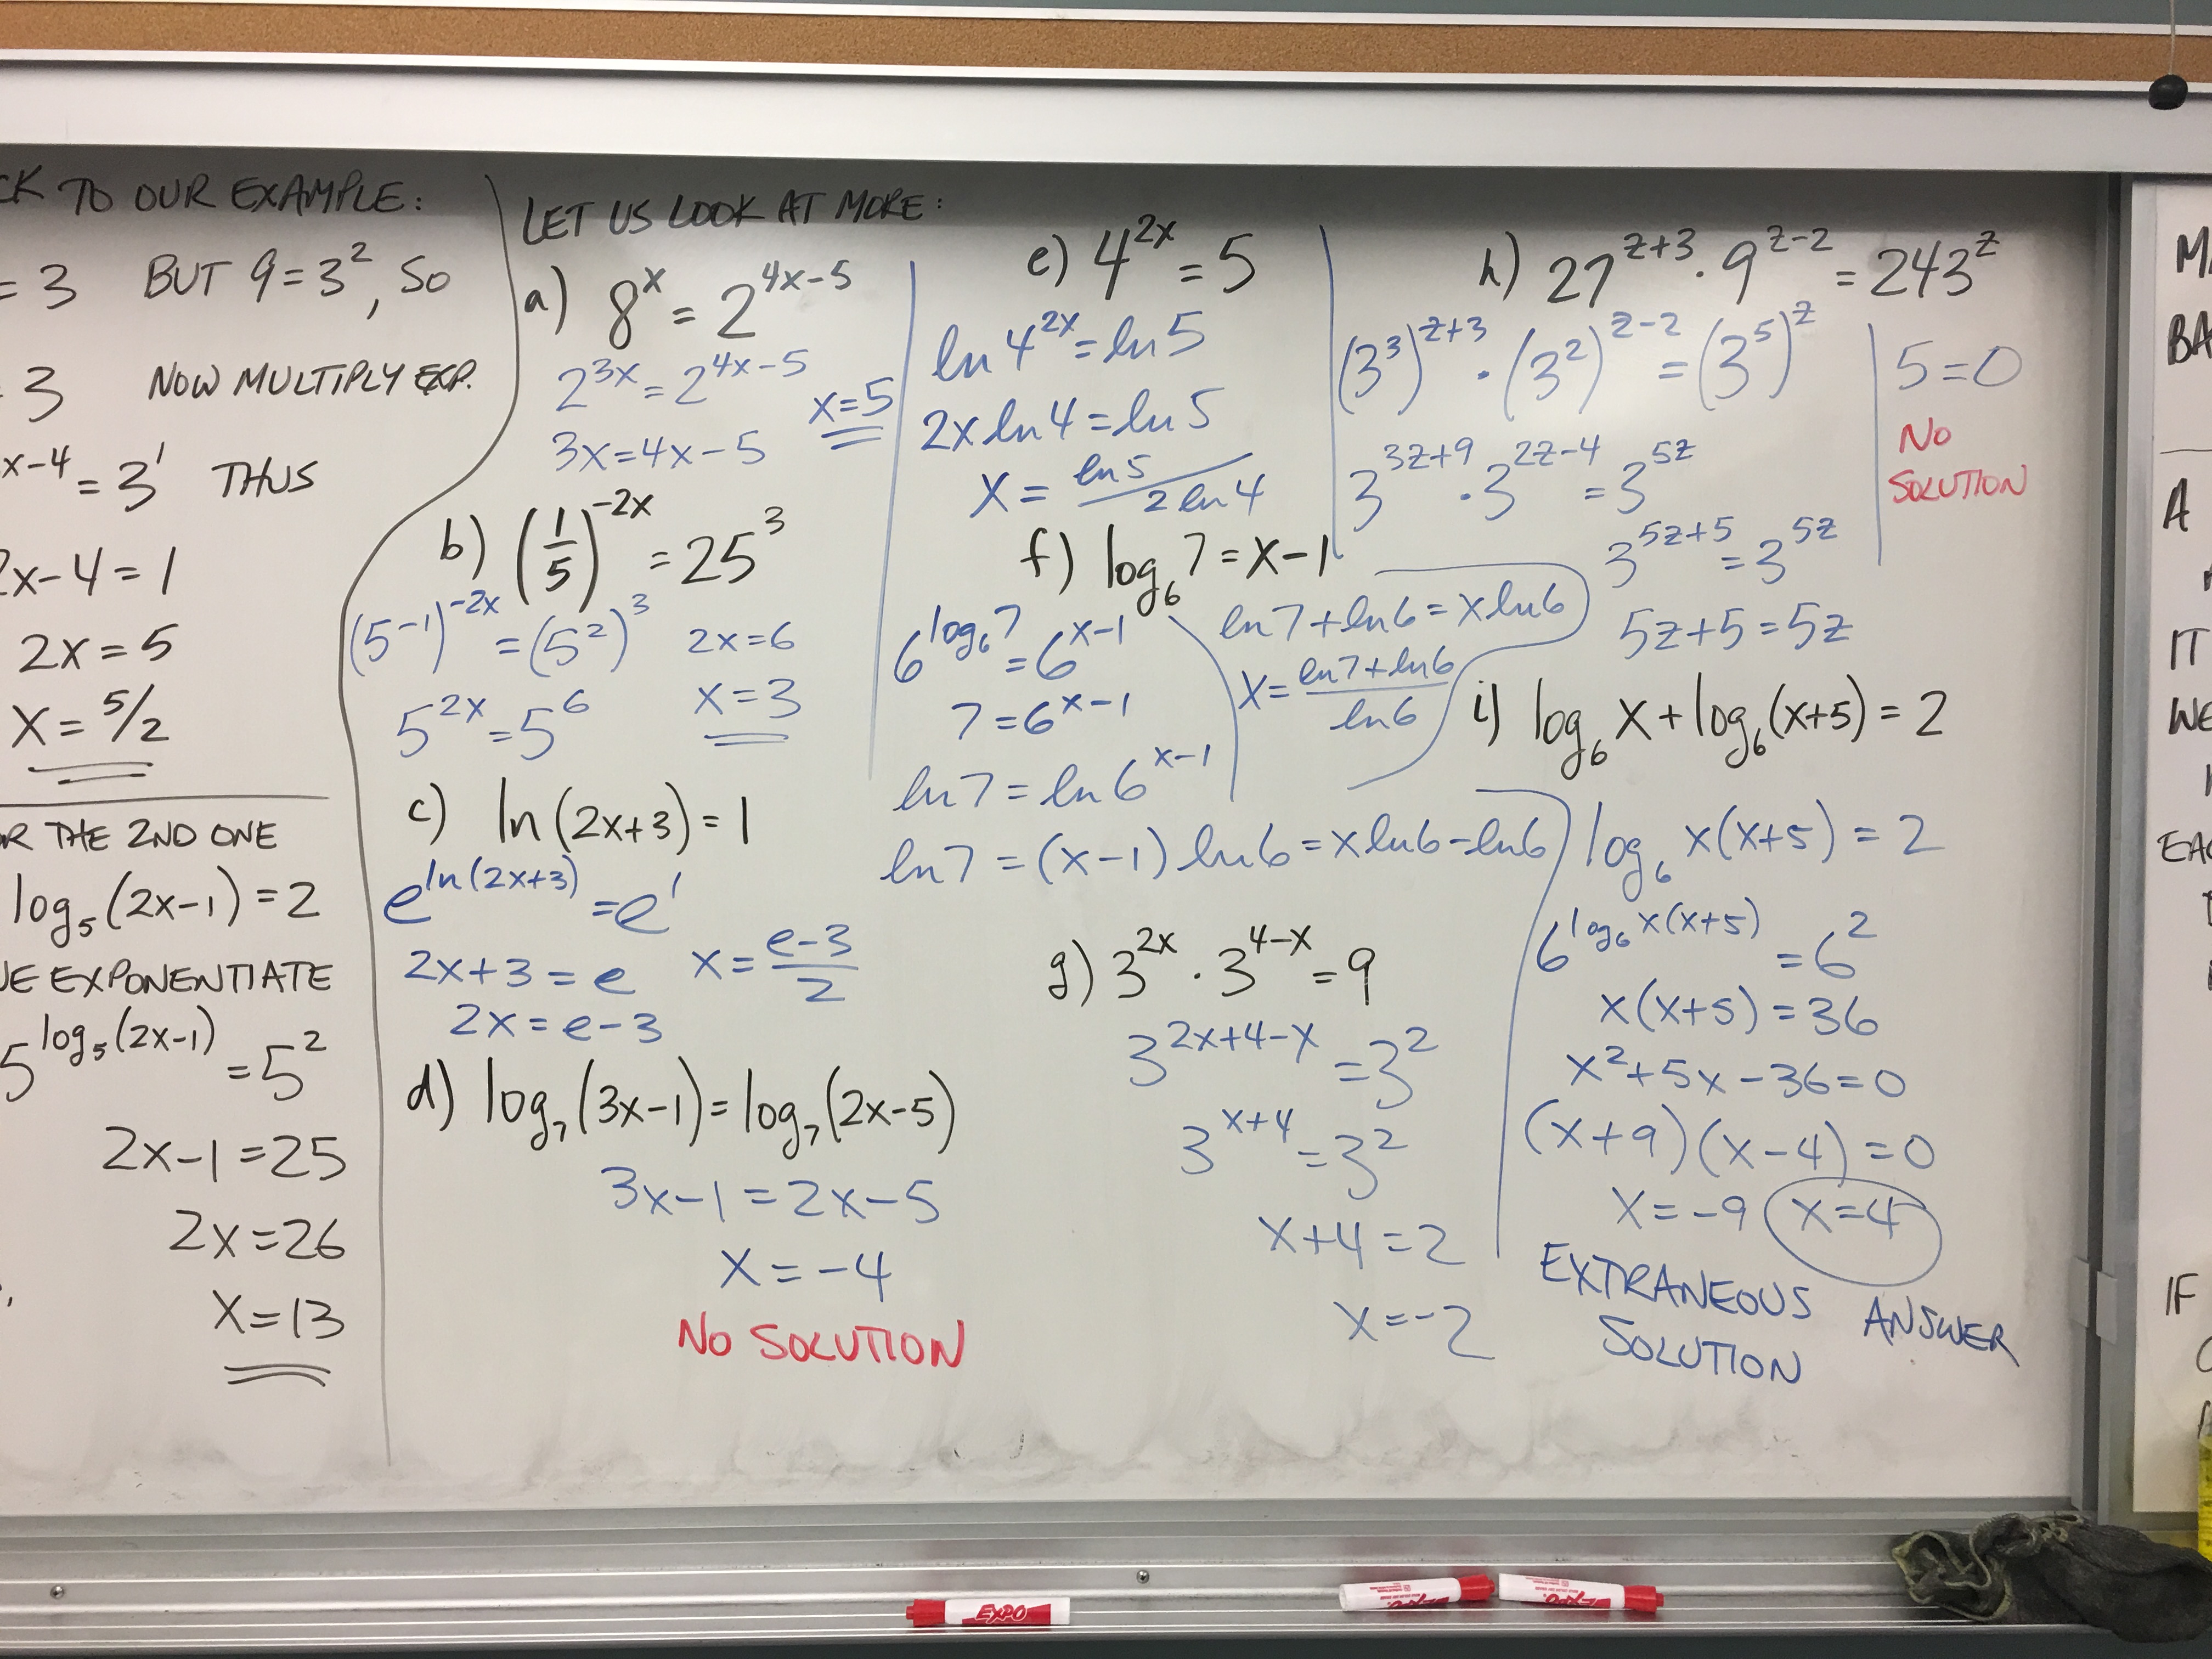 CK TO OUR EXAMPLE:
= 3 BUT 9 = 3², SO
3 NOW MULTIPLY EXP.
x-4 = 3¹ THUS
2x-4 = 1
2x = 5
x = 5/2
THE 2ND ONE
log₅(2x-1) = 2
EXPONENTIATE
5^(log₅(2x-1)) = 5²
2x-1 = 25
2x = 26
x = 13
LET US LOOK AT MORE:
a) 8^x = 2^(4x-5)
2^(3x) = 2^(4x-5)
3x = 4x-5
x = 5
b) (1/5)^(-2x) = 25³
(5^(-1))^(-2x) = (5²)³
5^(2x) = 5⁶
2x = 6
x = 3
c) ln(2x+3) = 1
e^(ln(2x+3)) = e¹
2x+3 = e
2x = e-3
x = (e-3)/2
d) log₇(3x-1) = log₇(2x-5)
3x-1 = 2x-5
x = -4
NO SOLUTION
e) 4^(2x) = 5
ln 4^(2x) = ln 5
2x ln 4 = ln 5
x = ln 5 / 2 ln 4
f) log₆ 7 = x-1
6^(log₆ 7) = 6^(x-1)
7 = 6^(x-1)
ln 7 = ln 6^(x-1)
ln 7 = (x-1) ln 6 = x ln 6 - ln 6
ln 7 + ln 6 = x ln 6
x = (ln 7 + ln 6)/ln 6
g) 3^(2x) · 3^(4-x) = 9
3^(2x+4-x) = 3²
3^(x+4) = 3²
x+4 = 2
x = -2
h) 27^(z+3) · 9^(z-2) = 243^z
(3³)^(z+3) · (3²)^(z-2) = (3⁵)^z
3^(3z+9) · 3^(2z-4) = 3^(5z)
3^(5z+5) = 3^(5z)
5z+5 = 5z
5 = 0
NO
SOLUTION
i) log₆ x + log₆(x+5) = 2
log₆ x(x+5) = 2
6^(log₆ x(x+5)) = 6²
x(x+5) = 36
x²+5x-36 = 0
(x+9)(x-4) = 0
x = -9 x = 4
EXTRANEOUS
SOLUTION
ANSWER
A
IT
IF
EXPO